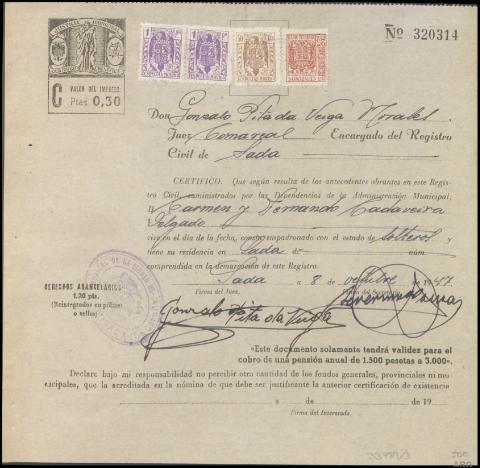 Nº 320314
C VALOR DEL IMPRESO:
Ptas 0,30
Don Gonzalo Pita da Veiga Morales
Juez Comarcal Encargado del Registro
Civil de Sada
CERTIFICO. Que según resulta de los antecedentes obrantes en este Regis-
tro Civil, suministrados por las Dependencias de la Administración Municipal,
D. Carmen y Fernando Cadaveira
Delgado
vive en el día de la fecha, consta empadronado con el estado de solteros y
tiene su residencia en Sada de núm.
comprendida en la demarcación de este Registro.
Sada a 8 de octubre de 1947.
Firma del Juez, Firma del Secretario,
DERECHOS ARANCELARIOS
1,20 pts.
(Reintegrados en pólizas
o sellos)
Gonzalo Pita da Veiga
«Este documento solamente tendrá validez para el
cobro de una pensión anual de 1.500 pesetas a 3.000».
Declaro bajo mi responsabilidad no percibir otra cantidad de los fondos generales, provinciales ni mu-
nicipales, que la acreditada en la nómina de que debe ser justificante la anterior certificación de existencia
a de de 19
Firma del Interesado.